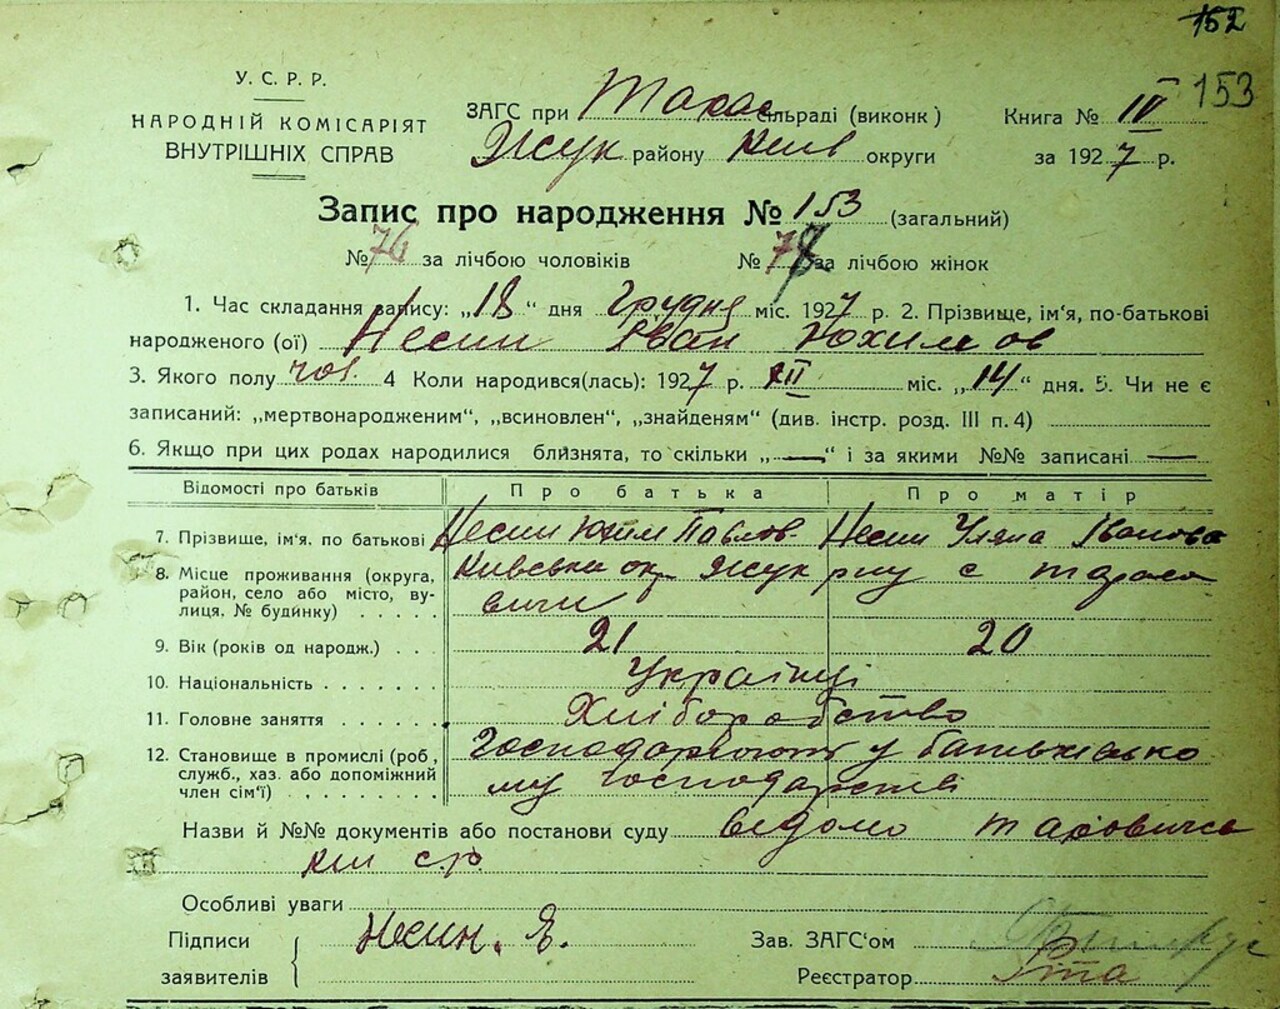 152
153
У. С. Р. Р.
НАРОДНІЙ КОМІСАРІЯТ
ВНУТРІШНІХ СПРАВ
ЗАГС при Тарас сільраді (виконк)
Жук району Київ округи
Книга № IV
за 1927 р.
Запис про народження № 153 (загальний)
№ 76 за лічбою чоловіків № за лічбою жінок
1. Час складання запису: „18“ дня Грудня міс. 1927 р. 2. Прізвище, ім'я, по-батькові
народженого (ої) Несин Іван Юхимов
3. Якого полу чол. 4 Коли народився(лась): 1927 р. XII міс. „14“ дня. 5. Чи не є
записаний: „мертвонародженим“, „всиновлен“, „знайденям“ (див. інстр. розд. III п. 4)
6. Якщо при цих родах народилися близнята, то скільки „—“ і за якими №№ записані —
Відомості про батьків Про батька Про матір
7. Прізвище, ім'я. по батькові Несин Юхим Павлов- Несин Уляна Іванова
8. Місце проживання (округа, район, село або місто, вулиця. № будинку) Київська ок. Жук р-ну с Тарасо
вичи
9. Вік (років од народж.) . . . 21 20
10. Національність . . . . . . . Українці
11. Головне заняття . . . . . . Хліборобство
12. Становище в промислі (роб, служб., хаз. або допоміжний член сім'ї) . . . . . . . . Господарюют у батьківсько
му господарстві
Назви й №№ документів або постанови суду відомо
с.р.
Особливі уваги
Підписи
заявителів
Несин. Я.
Зав. ЗАГС'ом
Реєстратор